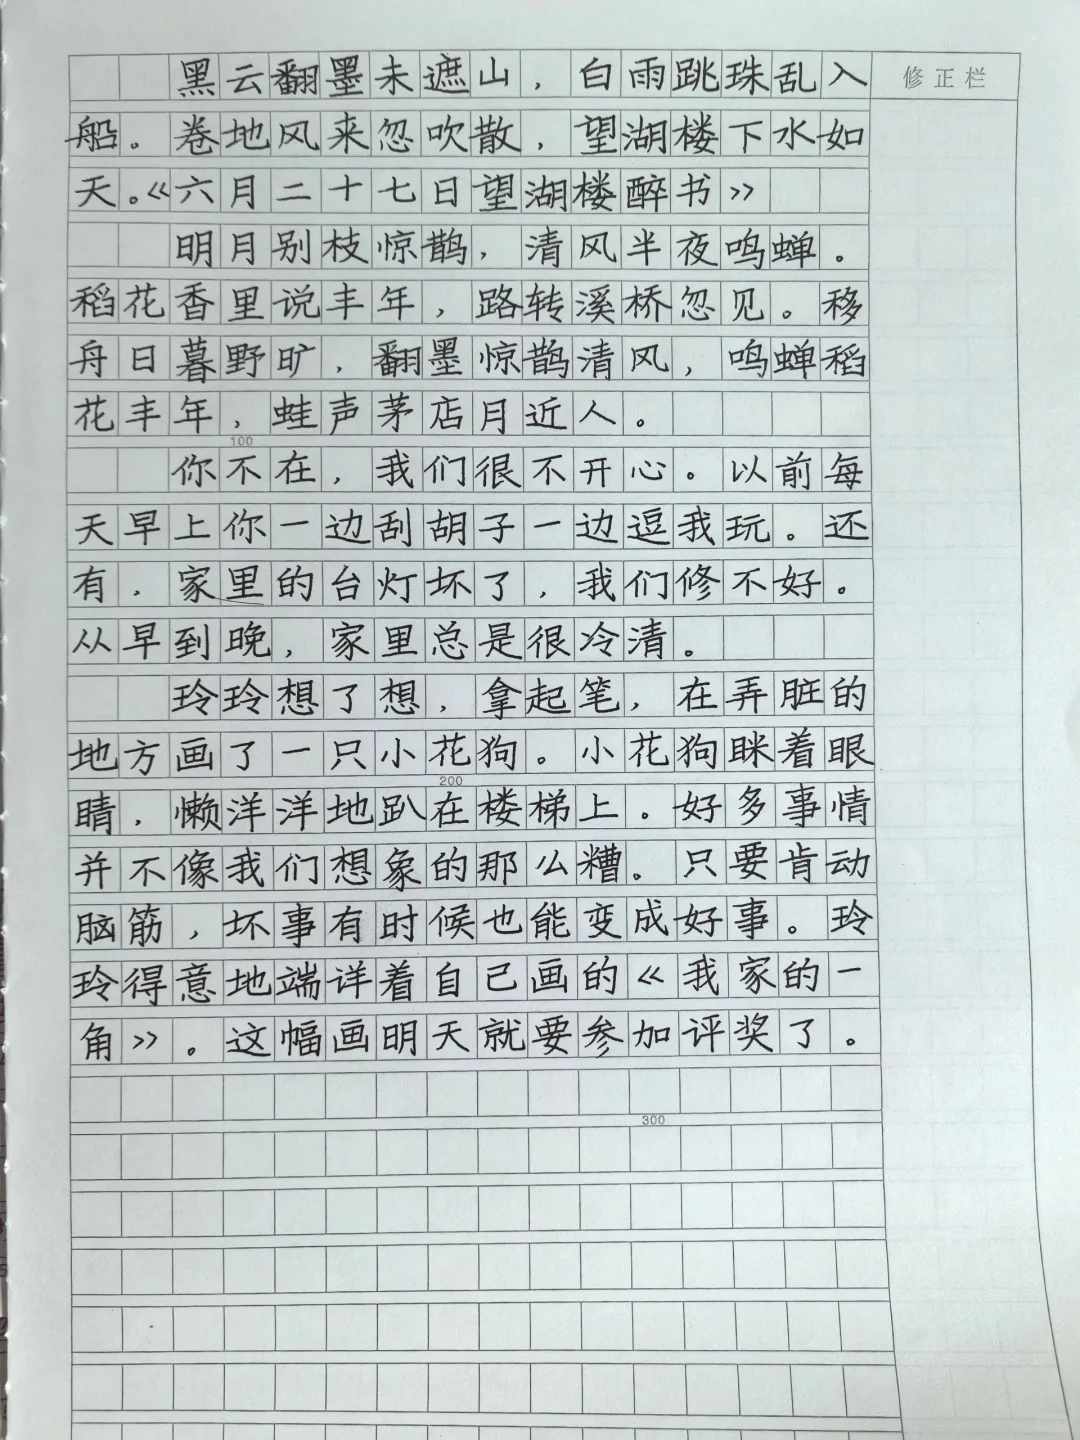 黑云翻墨未遮山，白雨跳珠乱入
修正栏
船。卷地风来忽吹散，望湖楼下水如
天。《六月二十七日望湖楼醉书》
明月别枝惊鹊，清风半夜鸣蝉。
稻花香里说丰年，路转溪桥忽见。移
舟日暮野旷，翻墨惊鹊清风，鸣蝉稻
花丰年，蛙声茅店月近人。
100
你不在，我们很不开心。以前每
天早上你一边刮胡子一边逗我玩。还
有，家里的台灯坏了，我们修不好。
从早到晚，家里总是很冷清。
玲玲想了想，拿起笔，在弄脏的
地方画了一只小花狗。小花狗眯着眼
200
睛，懒洋洋地趴在楼梯上。好多事情
并不像我们想象的那么糟。只要肯动
脑筋，坏事有时候也能变成好事。玲
玲得意地端详着自己画的《我家的一
角》。这幅画明天就要参加评奖了。
300